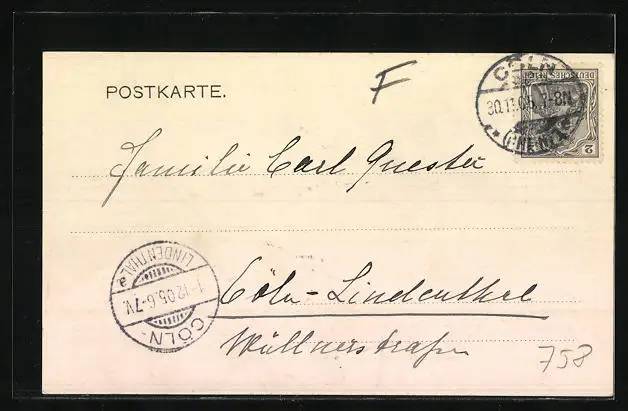 POSTKARTE.
F
CÖLN
30.11.05. 7-8N
DEUTSCHES REICH
2
Familie Carl Quester
CÖLN-LINDENTHAL
1-12.05.6-7V.
Cöln-Lindenthal
Wüllnerstraße
758